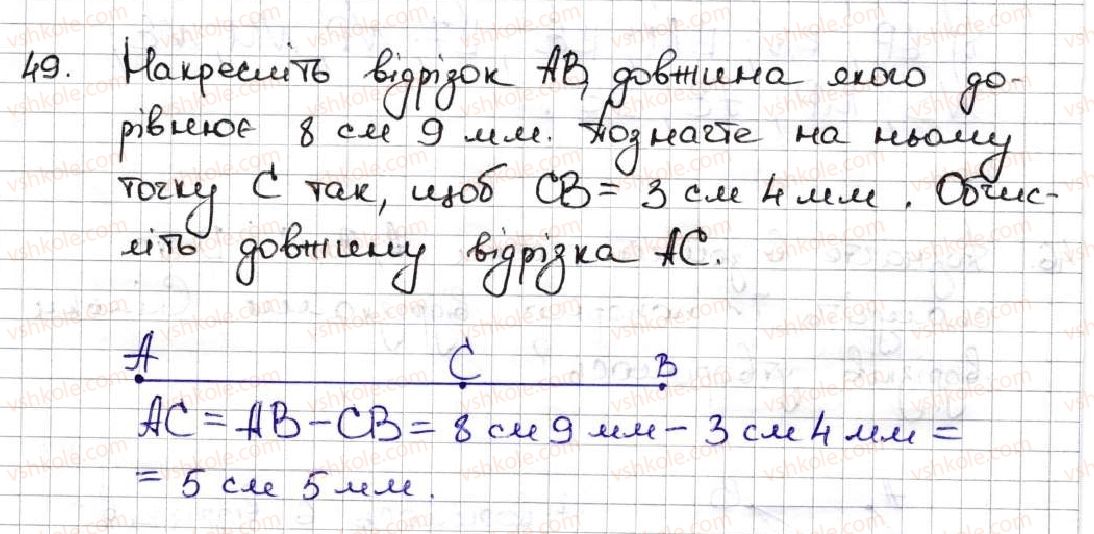 49. Накресліть відрізок AB, довжина якого до-
рівнює 8 см 9 мм. Позначте на ньому
точку C так, щоб CB = 3 см 4 мм. Обчис-
літь довжину відрізка AC.
A C B
AC = AB - CB = 8 см 9 мм - 3 см 4 мм =
= 5 см 5 мм.